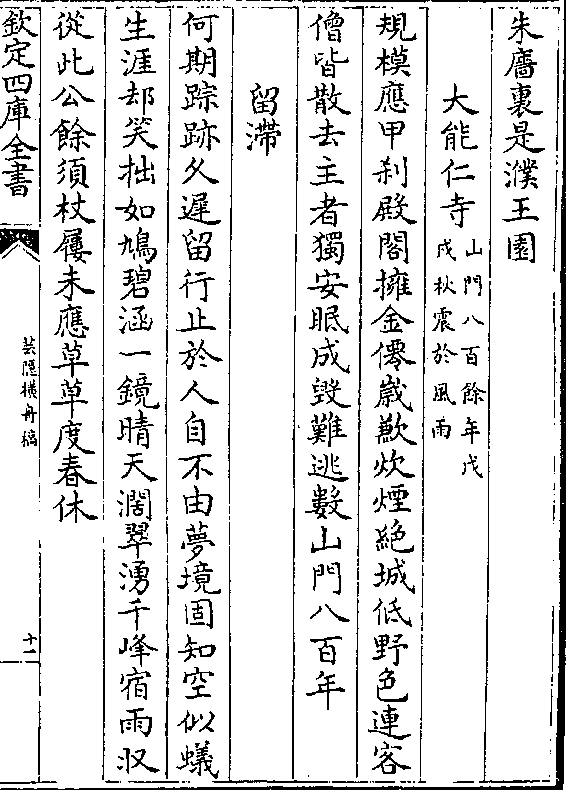 朱廧裏是濮王園
大能仁寺
山門八百餘年戊
戌秋震於風雨
規模應甲剎殿閣擁金僊嵗歉炊煙絶城低野色連客
僧皆散去主者獨安眠成毁難逃數山門八百年
留滯
何期踪跡久遲留行止於人自不由夢境固知空似蟻
生涯却笑拙如鳩碧涵一鏡晴天濶翠湧千峰宿雨收
從此公餘須杖屨未應草草度春休
欽定四庫全書
芸隱横舟稿
十一